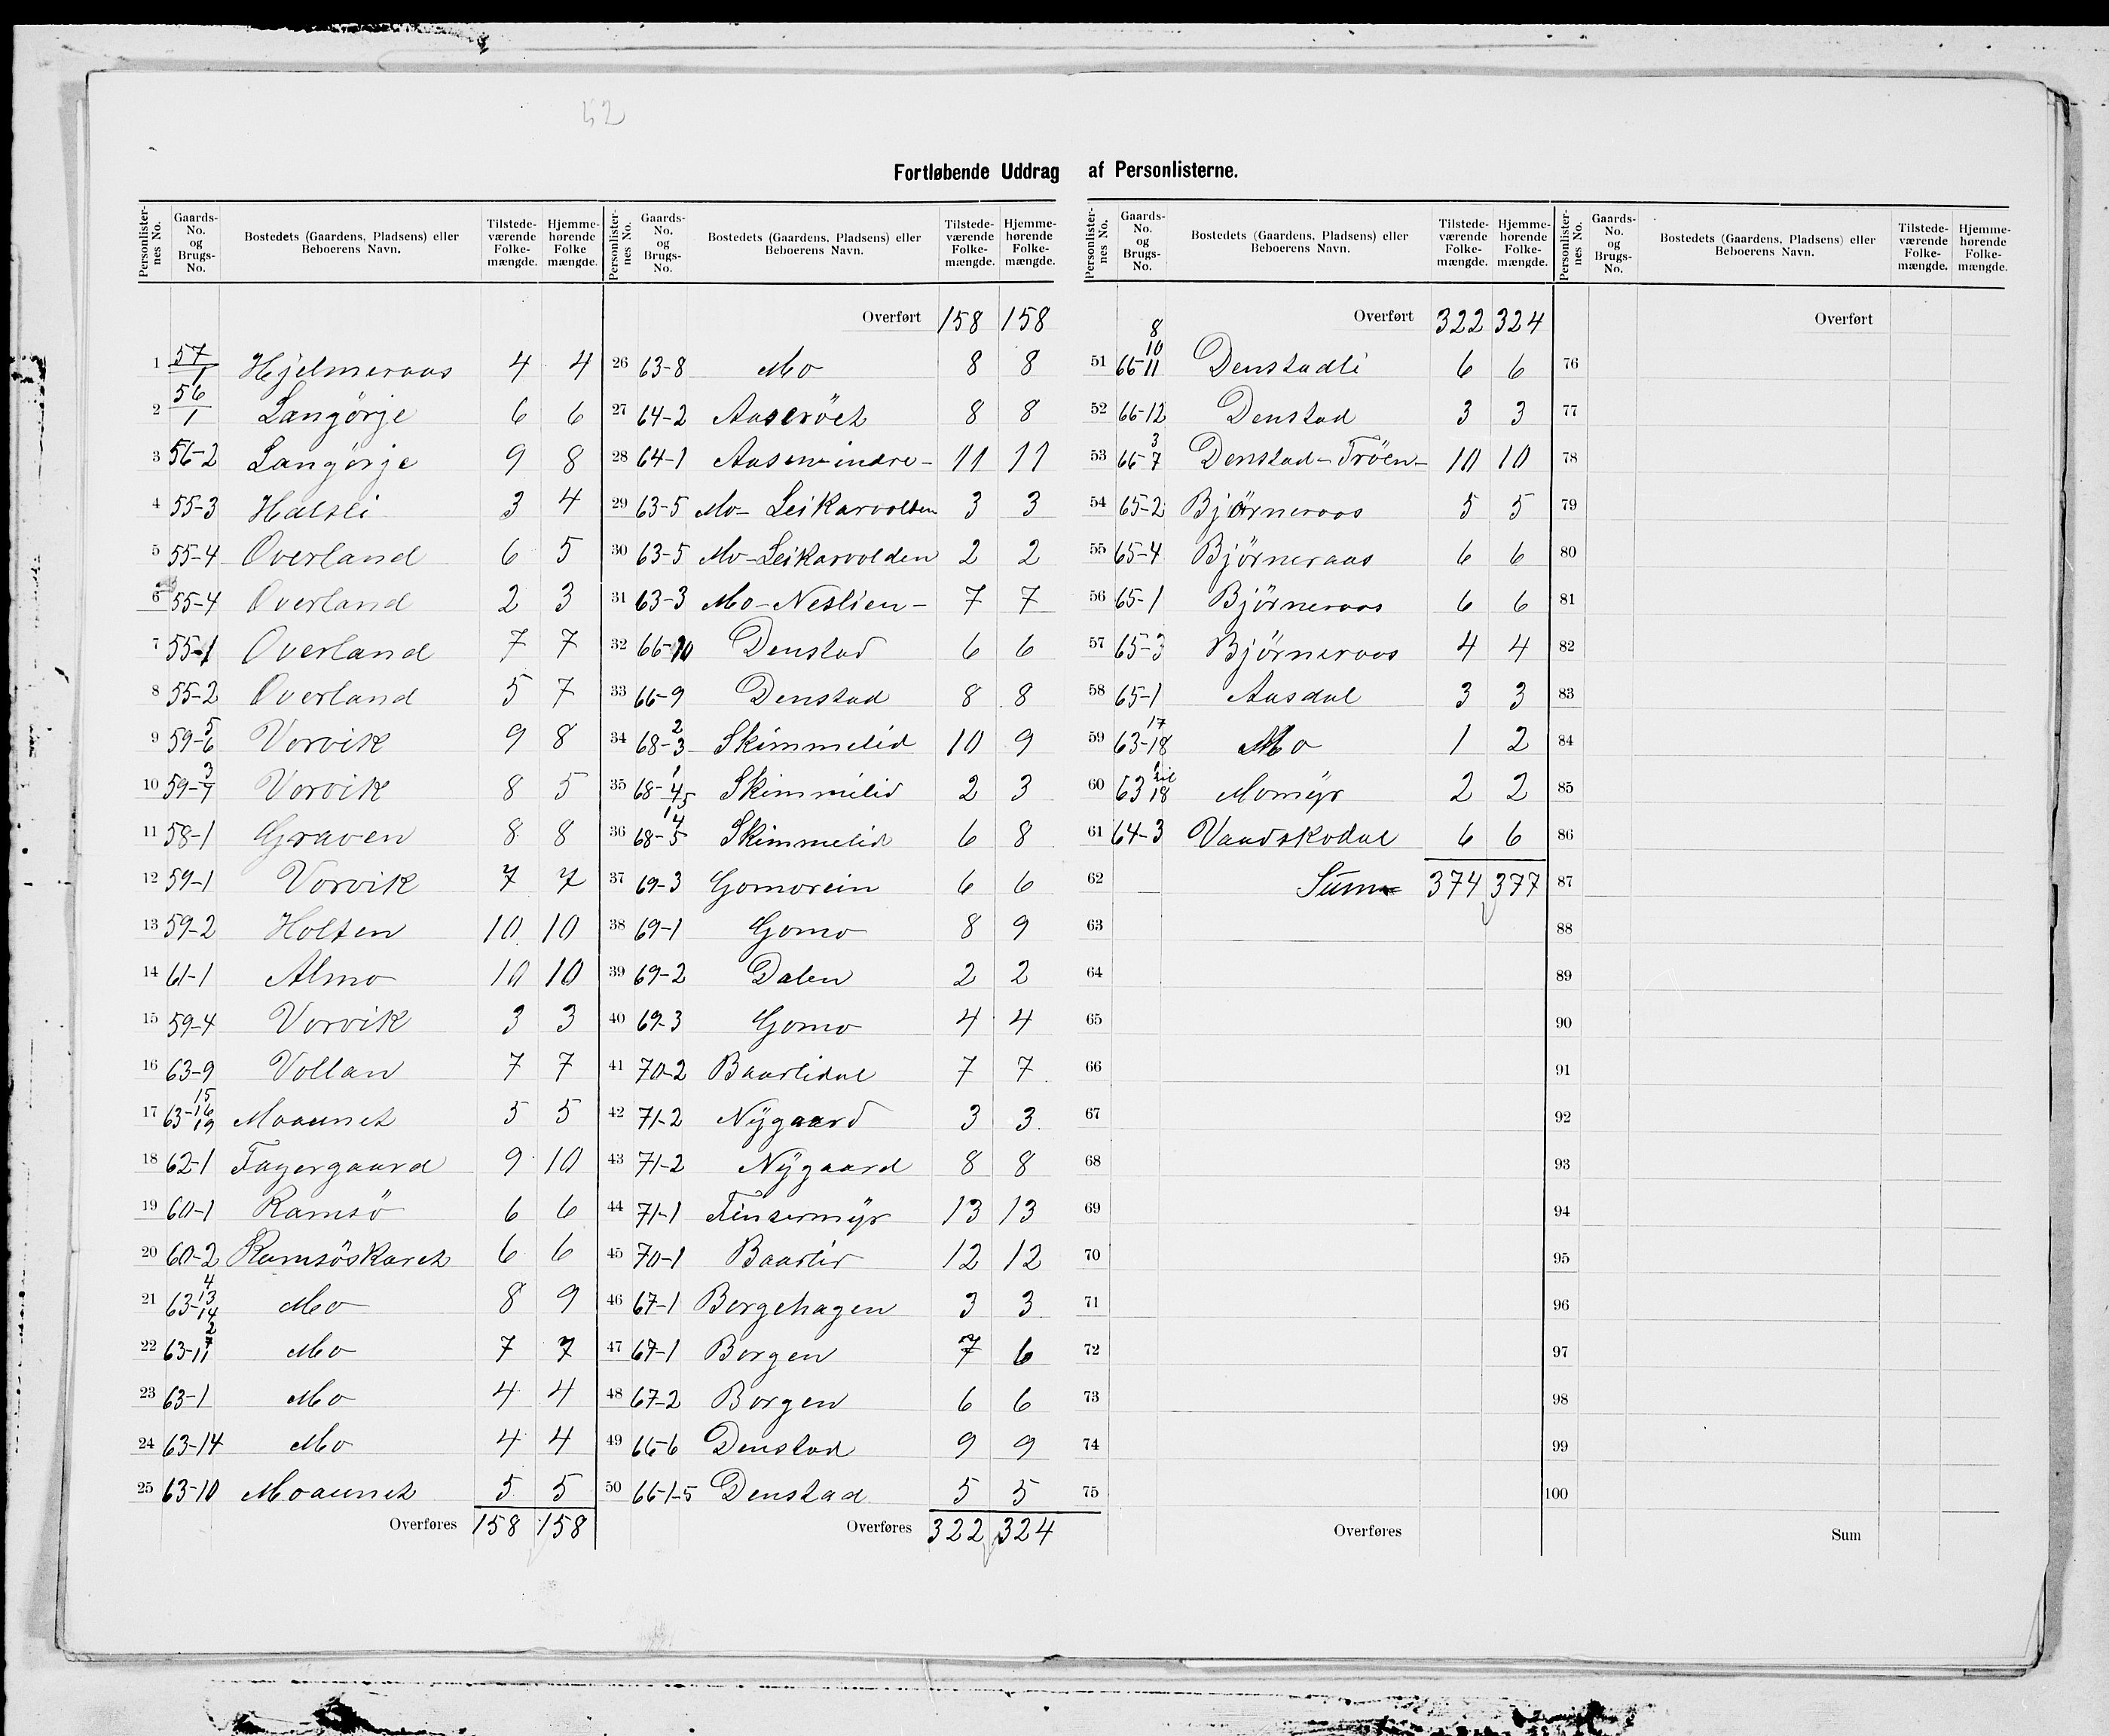 52
Fortløbende Uddrag af Personlisterne.
Personlisternes No. Gaards-No. og Brugs-No. Bostedets (Gaardens, Pladsens) eller Beboerens Navn. Tilstedeværende Folkemængde. Hjemmehørende Folke mængde.
1 57/1 Hjelmeraas 4 4
2 56/1 Langörje 6 6
3 56-2 Langörje 9 8
4 55-3 Halsli 3 4
5 55-4 Overland 6 5
6 55-4 Overland 2 3
7 55-1 Overland 7 7
8 55-2 Overland 5 7
9 59-5 6 Vorvik 9 8
10 59-3 7 Vorvik 8 5
11 58-1 Graven 8 8
12 59-1 Vorvik 7 7
13 59-2 Holten 10 10
14 61-1 Almo 10 10
15 59-4 Vorvik 3 3
16 63-9 Vollan 7 7
17 63-15 16 19 Moaunet 5 5
18 62-1 Fagergaard 9 10
19 60-1 Ramsö 6 6
20 60-2 Ramsöskaret 6 6
21 63-4 13 14 Mo 8 9
22 63-2 7 11 Mo 7 7
23 63-1 Mo 4 4
24 63-14 Mo 4 4
25 63-10 Moaunet 5 5
Overføres 158 158
Personlisternes No. Gaards-No. og Brugs-No. Bostedets (Gaardens, Pladsens) eller Beboerens Navn. Tilstedeværende Folkemængde. Hjemmehørende Folkemængde.
Overført 158 158
26 63-8 Mo 8 8
27 64-2 Aaseröet 8 8
28 64-1 Aasen-indre- 11 11
29 63-5 Mo- Leikarvolden 3 3
30 63-5 Mo-Leikarvolden 2 2
31 63-3 Mo-Neslien- 7 7
32 66-10 Denstad 6 6
33 66-9 Denstad 8 8
34 68-2 3 Skimmelid 10 9
35 68-1 4 5 Skimmelid 2 3
36 68-1 4 5 Skimmelid 6 8
37 69-3 Gomorein 6 6
38 69-1 Gomo 8 9
39 69-2 Dalen 2 2
40 69-3 Gomo 4 4
41 70-2 Baarlidal 7 7
42 71-2 Nygaard 3 3
43 71-2 Nygaard 8 8
44 71-1 Finsermyr 13 13
45 70-1 Baarlid 12 12
46 67-1 Borgehagen 3 3
47 67-1 Borgen 7 6
48 67-2 Borgen 6 6
49 66-6 Denstad 9 9
50 66-1-5 Denstad 5 5
Overføres 322 324
Personlisternes No. Gaards-No. og Brugs-No. Bostedets (Gaardens, Pladsens) eller Beboerens Navn. Tilstedeværende Folkemængde. Hjemmehørende Folkemængde.
Overført 322 324
51 66-8 10 11 Denstadli 6 6
52 66-12 Denstad 3 3
53 66-3 7 Denstad-Tröen- 10 10
54 65-2 Björneraas 5 5
55 65-4 Björneraas 6 6
56 65-1 Björneraas 6 6
57 65-3 Björneraas 4 4
58 65-1 Aasdal 3 3
59 63-17 18 Mo 1 2
60 63 1 til 18 Momyr 2 2
61 64-3 Vaadskodal 6 6
62 Sum 374 377
63
64
65
66
67
68
69
70
71
72
73
74
75
Overføres
Personlisternes No. Gaards-No. og Brugs-No. Bostedets (Gaardens, Pladsens) eller Beboerens Navn. Tilstedeværende Folkemængde. Hjemmehørende Folkemængde.
Overført
76
77
78
79
80
81
82
83
84
85
86
87
88
89
90
91
92
93
94
95
96
97
98
99
100
Sum